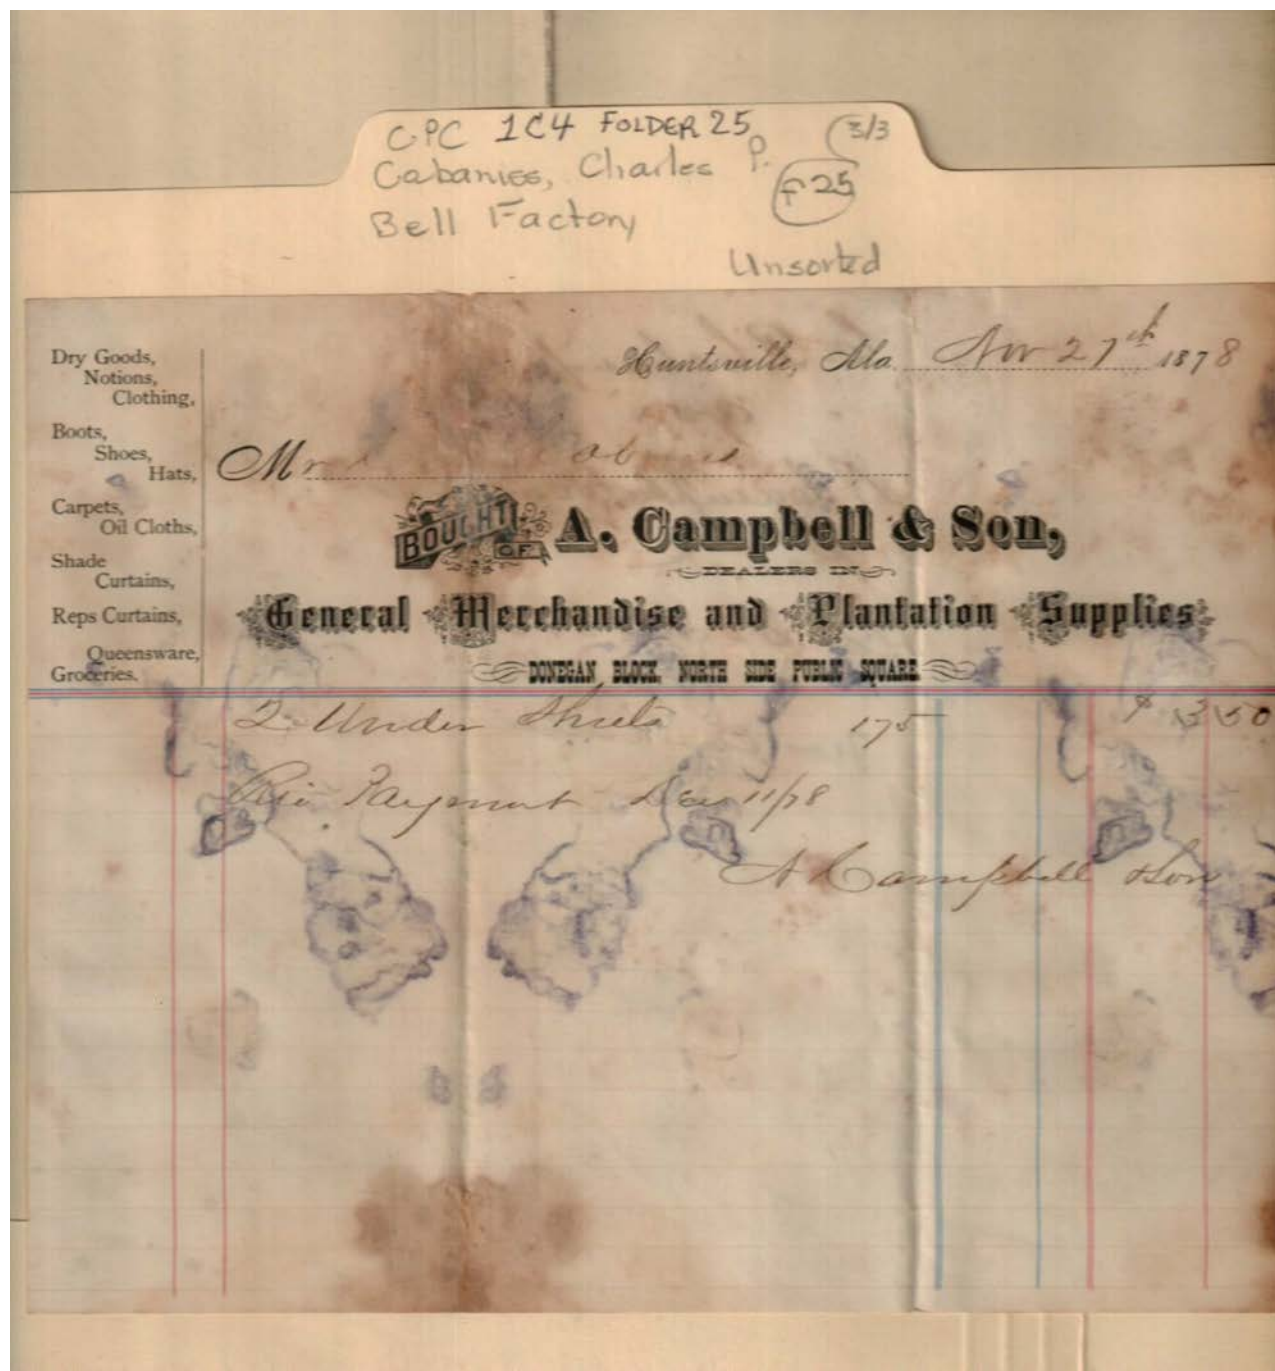 CPC 1C4 FOLDER 25 3/3
Cabaniss, Charles P. F25
Bell Factory
Unsorted
Huntsville, Ala. Nov 27th 1878
Dry Goods,
Notions,
Clothing,
Boots,
Shoes,
Hats,
Carpets,
Oil Cloths,
Shade
Curtains,
Reps Curtains,
Queensware,
Groceries.
Mr
BOUGHT OF A. Campbell & Son,
DEALERS IN
General Merchandise and Plantation Supplies
DONEGAN BLOCK, NORTH SIDE PUBLIC SQUARE
2 Under Shirts 175 $ 3 50
Payment Dec 11/78
A Campbell & Son